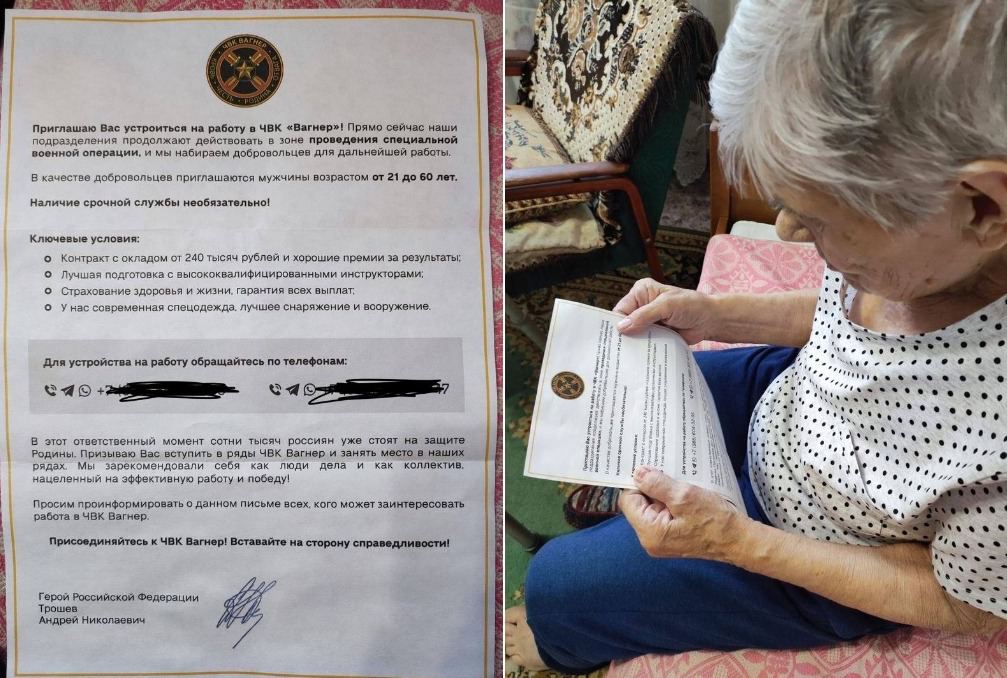 ЧВК ВАГНЕР
ЧЕСТЬ РОДИНА
Приглашаю Вас устроиться на работу в ЧВК «Вагнер»! Прямо сейчас наши
подразделения продолжают действовать в зоне проведения специальной
военной операции, и мы набираем добровольцев для дальнейшей работы.
В качестве добровольцев приглашаются мужчины возрастом от 21 до 60 лет.
Наличие срочной службы необязательно!
Ключевые условия:
Контракт с окладом от 240 тысяч рублей и хорошие премии за результаты;
Лучшая подготовка с высококвалифицированными инструкторами;
Страхование здоровья и жизни, гарантия всех выплат;
У нас современная спецодежда, лучшее снаряжение и вооружение.
Для устройства на работу обращайтесь по телефонам:
+ 7
В этот ответственный момент сотни тысяч россиян уже стоят на защите
Родины. Призываю Вас вступить в ряды ЧВК Вагнер и занять место в наших
рядах. Мы зарекомендовали себя как люди дела и как коллектив,
нацеленный на эффективную работу и победу!
Просим проинформировать о данном письме всех, кого может заинтересовать
работа в ЧВК Вагнер.
Присоединяйтесь к ЧВК Вагнер! Вставайте на сторону справедливости!
Герой Российской Федерации
Трошев
Андрей Николаевич